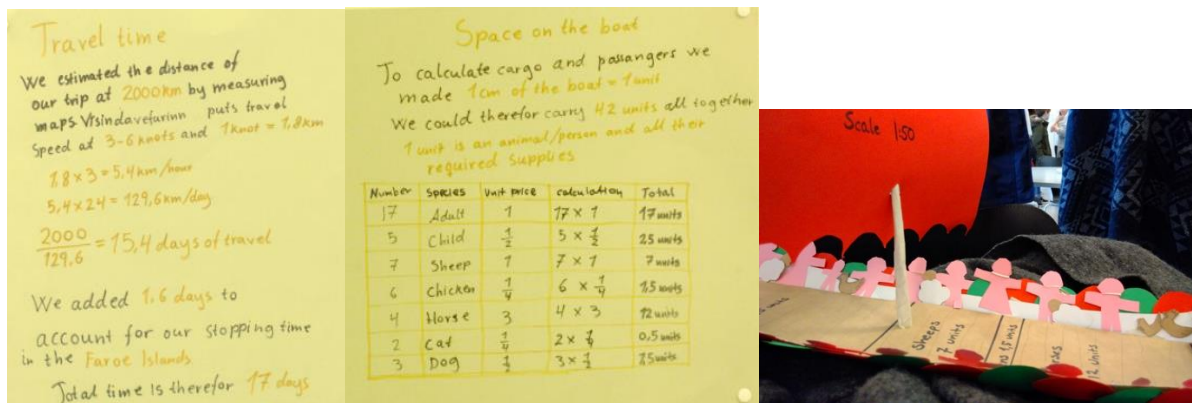 Travel time
We estimated the distance of
our trip at 2000km by measuring
maps. puts travel
speed at 3-6 knots and 1 knot = 1,8km
1,8 x 3 = 5,4 km/hour
5,4 x 24 = 129,6 km/day
2000
129,6
= 15,4 days of travel
We added 1,6 days to
account for our stopping time
in the Faroe Islands
Total time is therefor 17 days
Space on the boat
To calculate cargo and passangers we
made 1cm of the boat = 1 unit
We could therefor carry 42 units all together
1 unit is an animal/person and all their
required supplies
Number Species Unit price calculation Total
17 Adult 1 17 x 1 17 units
5 Child 1/2 5 x 1/2 25 units
7 Sheep 1 7 x 1 7 units
6 Chicken 1/4 6 x 1/4 units
4 Horse 3 4 x 3 12 units
2 Cat 1/4 2 x 1/4 0,5 units
3 Dog 1/2 3 x 1/2 units
Scale 1:50
Sheeps
7 units
12 units